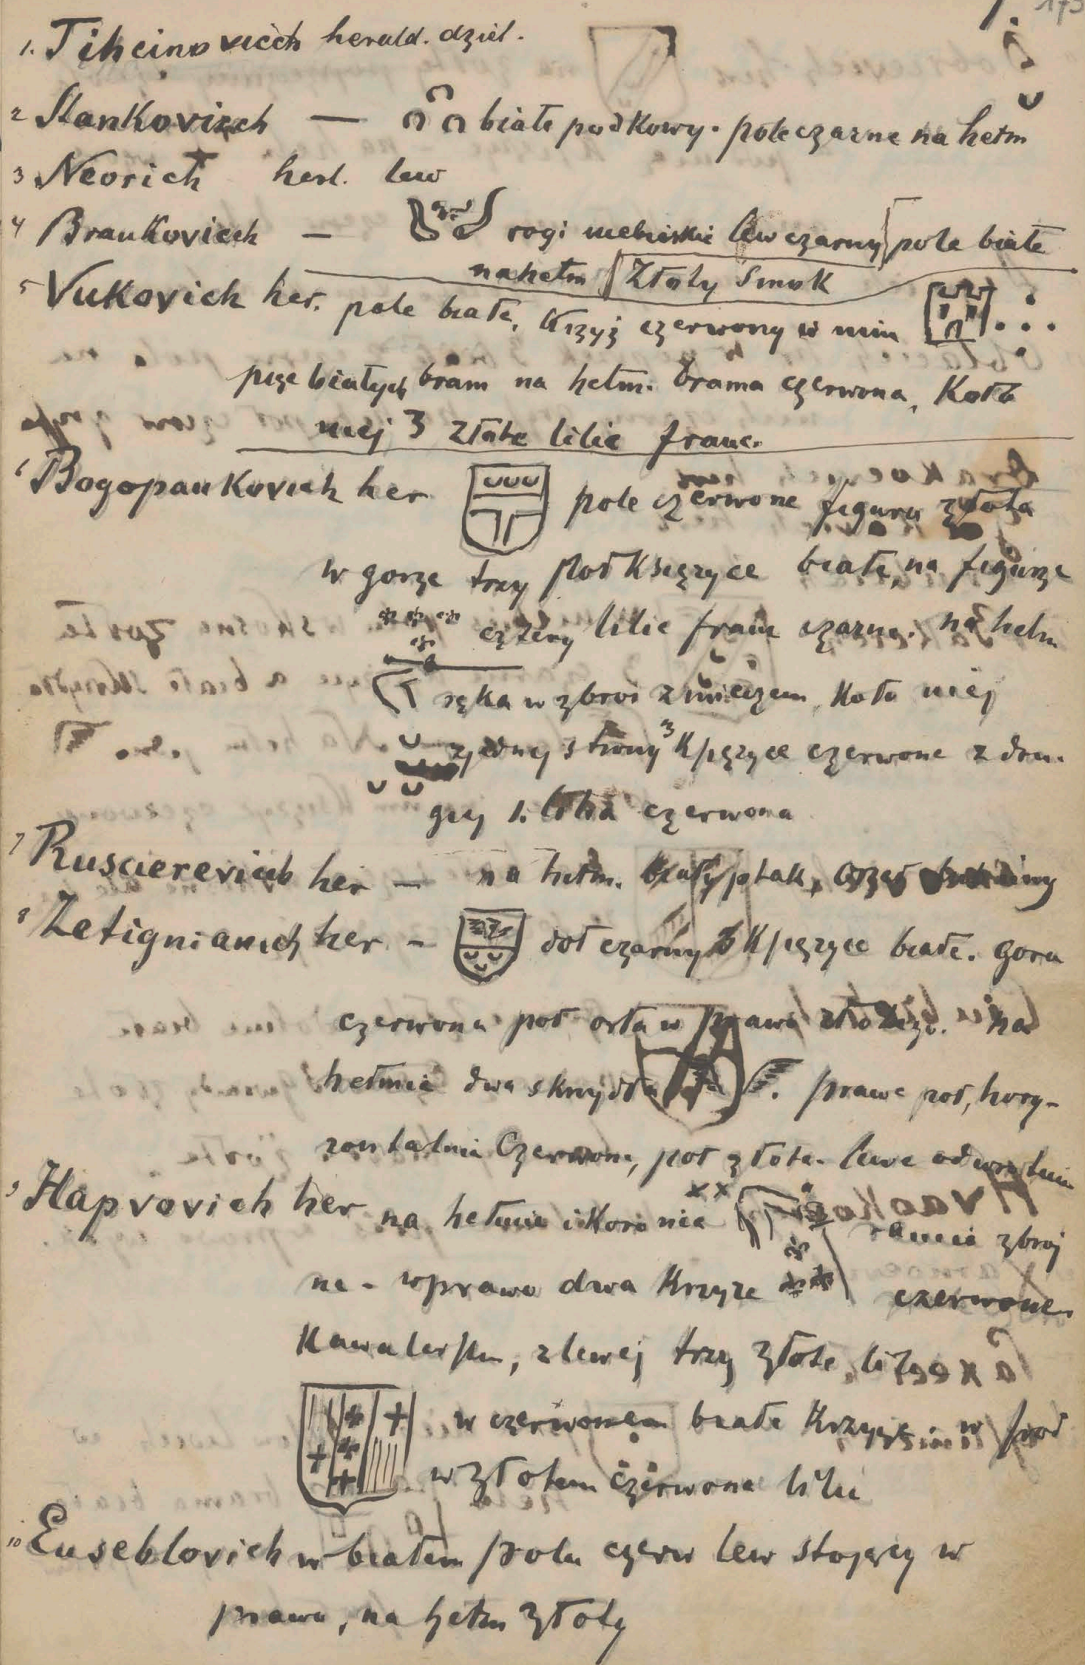 173
1. Tihcinovich herald. dziel.
2 Stankovich — białe podkowy. pole czarne na hełm
3 Neorich herl. lew
4 Brankovich — rogi niebieskie lew czarny pole białe
na hełm Złoty Smok
5 Vukovich her. pole białe, Krzyż czerwony w nim
pięc białych bram na hełm. brama czerwona, Koło
niej 3 złote lilie franc.
6 Bogopankovich her pole czerwone figura złota
w gorze trzy połksiężyce białe, na figurze
cztery lilie franc czarne. na hełm
ręka w zbroi z mieczem, Koło niej
z jednej strony 3 Księżyce czerwone z dru-
giej 1. lilia czerwona
7 Ruscierevich her — na hełm. biały ptak,
8 Zetignianich her — doł czarny 3 Księżyce białe. gora
czerwona poł orła w prawo złotego. na
hełmie dwa skrzydła. prawe poł, hory-
zontalnie Czerwone, poł złote. lewe odwrotnie
9 Hapvovich her na hełmie i Koronie ramie zbroj
ne - w prawo dwa Krzyże czerwone
Kawalerskie, z lewej trzy złote lilie
w czerwonem białe Krzyże w
w złotem czerwone lilie
10 Euseblovich w białem polu czerw lew stojący w
prawo, na hełm złoty